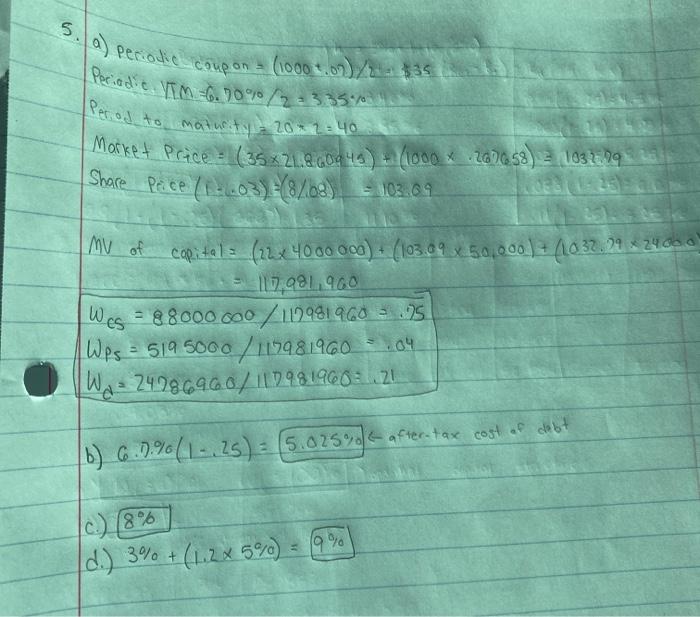 5. a) Periodic coupon = (1000 * .07) / 2 = $35
Periodic YTM = 6.70% / 2 = 3.35%
Period to maturity = 20 * 2 = 40
Market Price = (35 x 21.860945) + (1000 x .267658) = 1032.79
Share Price (1-.03) = (8/.08) = 103.09
MV of capital = (22 x 4000000) + (103.09 x 50,000) + (1032.79 x 24000)
= 117,981,960
Wcs = 88000000 / 117981960 = .75
Wps = 5195000 / 117981960 = .04
Wd = 24786960 / 117981960 = .21
b) 6.7% (1-.25) = 5.025% ← after-tax cost of debt
c.) 8%
d.) 3% + (1.2 x 5%) = 9%